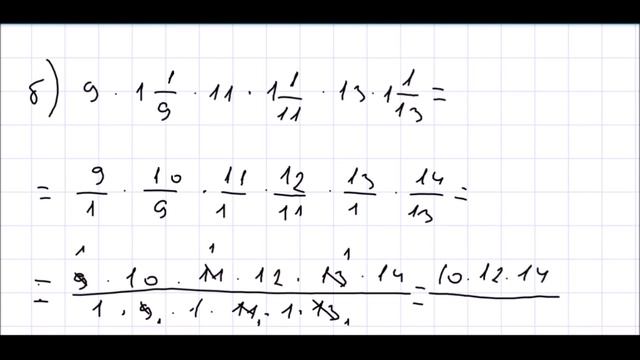 б) 9 · 1 1/9 · 11 · 1 1/11 · 13 · 1 1/13 =
= 9/1 · 10/9 · 11/1 · 12/11 · 13/1 · 14/13 =
= 9 · 10 · 11 · 12 · 13 · 14 / 1 · 9 · 1 · 11 · 1 · 13 = 10 · 12 · 14